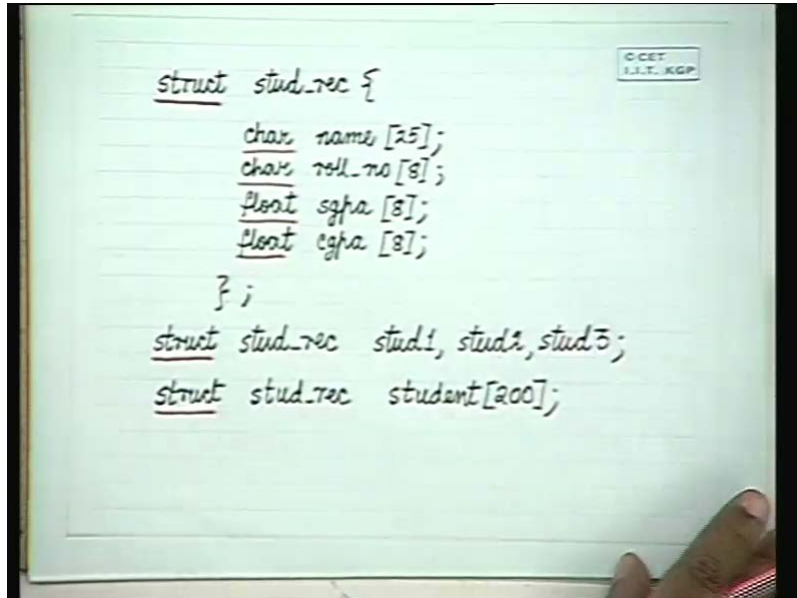 © CET
I.I.T. KGP
struct stud_rec {
char name [25];
char roll_no [8];
float sgpa [8];
float cgpa [8];
} ;
struct stud_rec stud1, stud2, stud3;
struct stud_rec student[200];